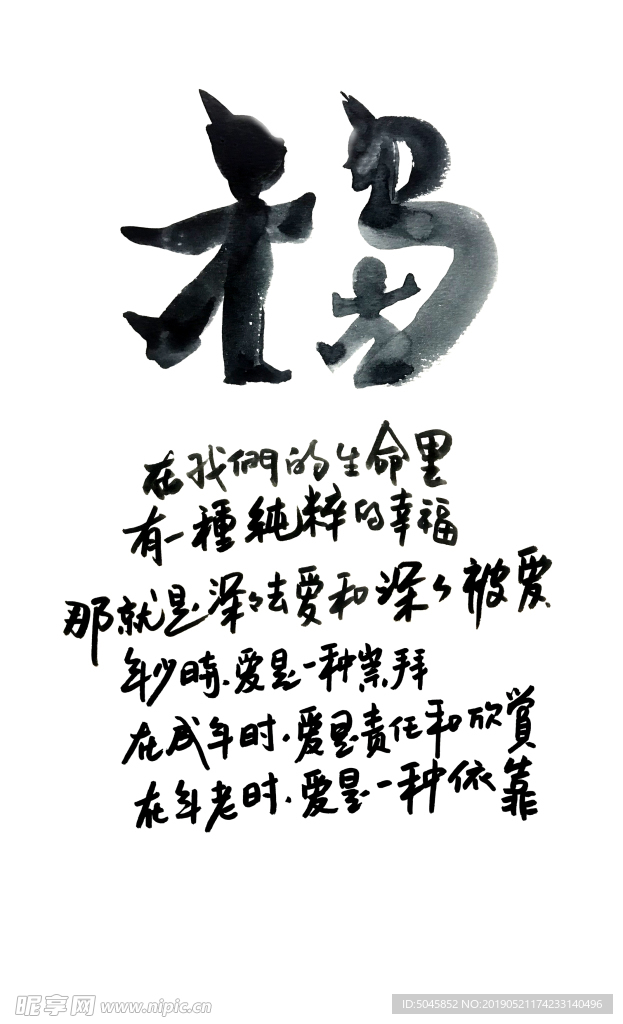 福
在我們的生命里
有一種純粹的幸福
那就是深々去爱和深々被爱
年少時.爱是一种崇拜
在成年时.爱是责任和欣賞
在年老时.爱是一种依靠
昵享网 www.nipic.cn
ID:5045852 NO:20190521174233140496